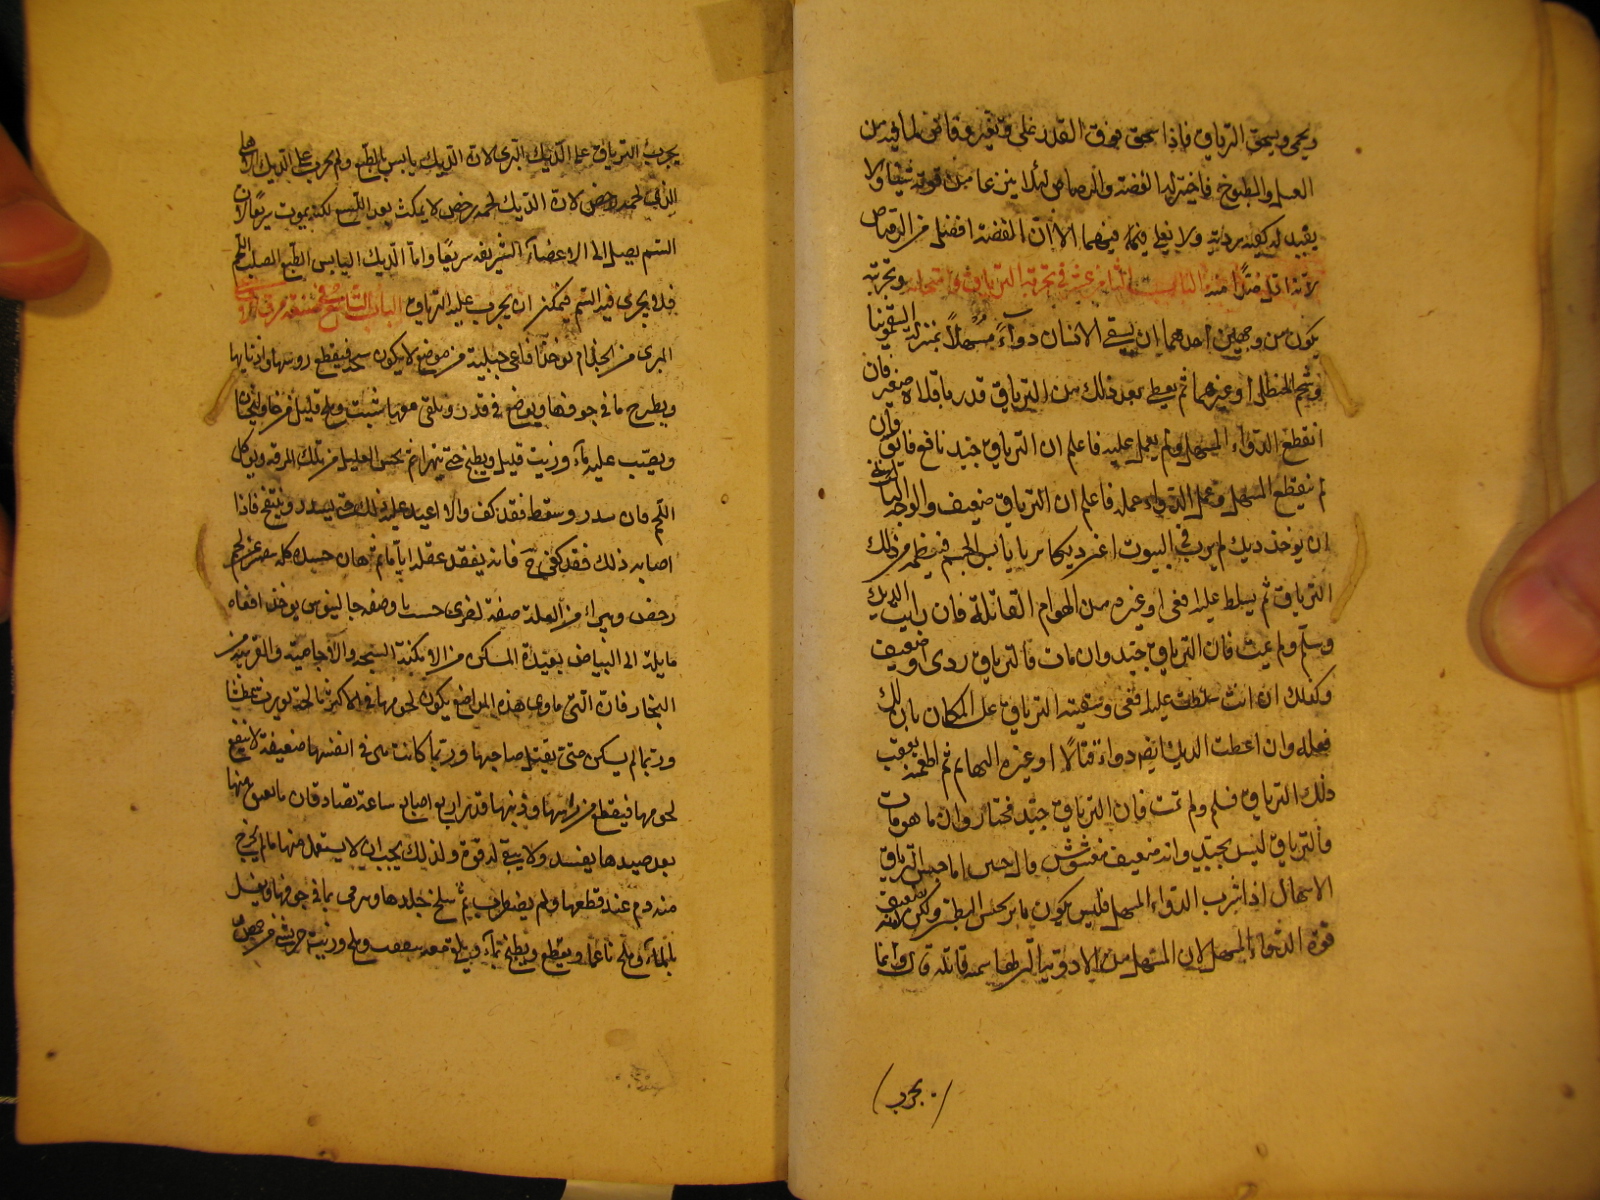 ويحمى ويسحق الترياق فاذا سحق فوق القدر غلى وتغير وفاض لما فيه من
العسل والطبوخ فاختير لها الفضة والرصاص لئلا ينزعا من قوته شيئا ولا
يفيد له كيفية ردية ولا يغلي فيهما الا ان الفضة افضل من الرصاص
لانه اقل ضررا منه الباب الثامن عشر في تجربة الترياق وامتحانه وتجربته
يكون من وجهين احدهما ان يسقى الانسان دواءً مسهلاً بمنزلة السقمونيا
وشحم الحنظل او غيرهما ثم يعطى بعد ذلك من الترياق قدر باقلاة صغيرة فان
انقطع الدواء المسهل ولم يعمل عليه فاعلم ان الترياق جيد نافع فايق وان
لم ينقطع المسهل وعمل الدواء عمله فاعلم ان الترياق ضعيف والوجه الثاني
ان يوخذ ديك لم يرب في البيوت اعنى ديكا بريا يابس الجسم فيطعم من ذلك
الترياق ثم يسلط عليه افعى او غيره من الهوام القاتلة فان رايت الديك
وسلم ولم يمت فان الترياق جيد وان مات فالترياق ردى او ضعيف
وكذلك ان انت سلطت عليه افعى وسقيته الترياق على المكان بان لك
فعله وان اعطيت الديك ايضا دواء قتالاً او غيره البهايم ثم اطعمته بعقب
ذلك الترياق فسلم ولم يمت فان الترياق جيد فختار وان ما هو مات
فالترياق ليس بجيد وانه ضعيف مغشوش قال حنين اما حبس الترياق
الاسهال اذا شرب الدواء المسهل فليس يكون بانه يحبس البطن ولكن لانه يضعف
قوة الدواء المسهل لان المسهل من الادوية التى لها سمية قاتلة قال وانما
يجرب
يجرب الترياق على الديك البرى لان الديك يابس بالطبع ولم يجرب على الديك الاهلى
الذى لحمه رخص لان الديك لحمه رخص لا يمكث بعد اللسع لكنه يموت سريعا لان
السم يصل الى الاعضاء الشريفة سريعًا واما الديك اليابس الطبع الصلب اللحم
فلا يجرى فيه السم فيمكن ان يجرب عليه الترياق الباب التاسع عشر في صنعة مرق الافاعى
المبرى من الجذام توخذ افاعى جبلية من موضع لا يكون سبخة فيقطع روسها واذنابها
ويطرح ما فى جوفها ويوضع فى قدر ويلقى معها شبت وملح قليل من خاولنجان
ويصب عليه ماء وزيت قليل ويطبخ حتى يتهرا ثم يحسى العليل من تلك المرقة وياكل
اللحم فان سدر وسقط فقد كف والا اعيد عليه ذلك حتى يسدر وينتفخ فاذا
اصابه ذلك فقد كفى فانه يفقد عقله اياما ثم هان جسده كله يسر عن لحم
رخص ويبراء من العلة صفة اخرى حسب ما وصفه جالينوس يوخذ افعاه
مايلة الى البياض بعيدة المسكن من الامكنة السبخة والآجامية والقريبة من
البحار فان التى ماوى هذه المواضع يكون لحومها فى الاكثر مالحة يورث عطشا
وربما لم يسكن حتى يقتل صاحبها وربما كانت هى فى انفسها ضعيفة لا ينتفع
لحومها فيقطع من راسها وذنبها قدر اربع اصابع ساعة تصاد فان ما تعيق منها
بعد صيدها يفسد ولا يبقى له قوة ولذلك يجب ان لا يستعمل منها ما لم يخرج
منه دم عند قطعها ولم يضطرب ثم يسلخ جلدها ويرمى بما فى جوفها ويغسل
بالماء وملح ناعما ويقطع ويطبخ بماء ويلقى معه